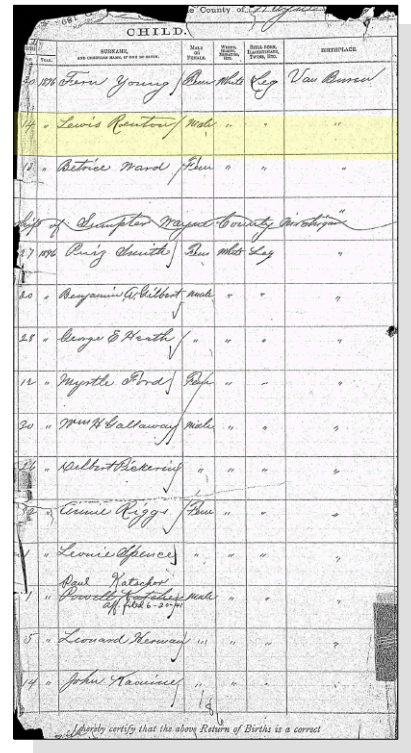 County of Wayne
CHILD.
YEAR. SURNAME, AND CHRISTIAN NAME, IF ONE BE GIVEN. MALE OR FEMALE. WHITE, BLACK, MULATTO, ETC. BIRTHPLACE
20 1896 Fern Young Fem White Leg Van Buren
14 " Lewis Renton Male " " "
12 " Betrice Ward Fem " " "
ship of Sumpter Wayne County Michigan
27 1896 Smith Fem White Leg "
20 " Benjamin A. Gilbert Male " " "
28 " George E Heath " " " "
12 " Myrtle Ford Fem " " "
20 " Wm H Gallaway Male " " "
26 " Delbert Pickering " " " "
" Annie Riggs Fem " " "
1 " Leonie Spence " " " "
Paul Katschor
1 " Powell Male " " "
aff. filed 6-20-41
5 " Leonard Herman " " " "
14 " John " " " "
I hereby certify that the above Return of Births is a correct